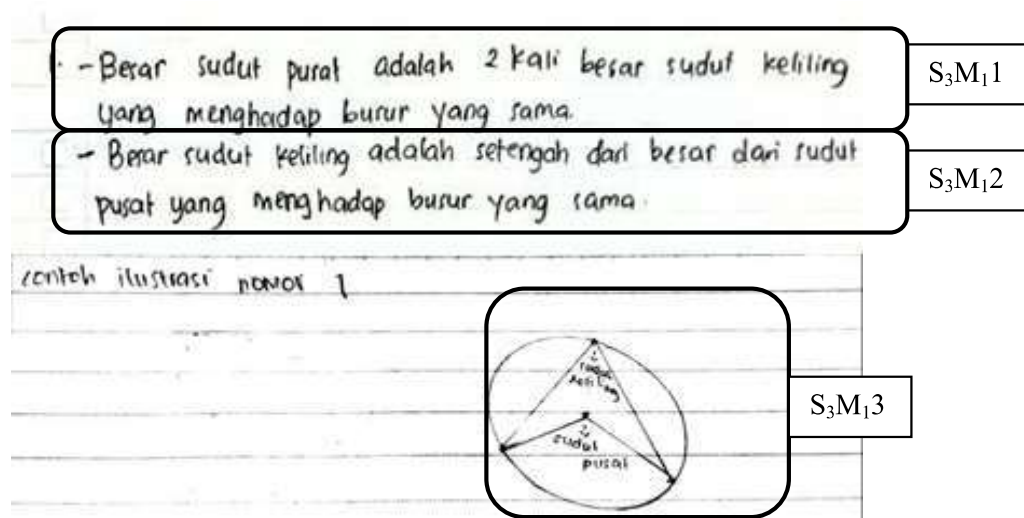 - Besar sudut pusat adalah 2 kali besar sudut keliling
S₃M₁1
yang menghadap busur yang sama.
- Besar sudut keliling adalah setengah dari besar dari sudut
S₃M₁2
pusat yang menghadap busur yang sama.
contoh ilustrasi nomor 1
sudut
keliling
S₃M₁3
sudut
pusat